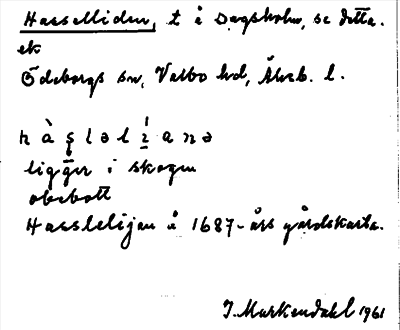 Hasselliden, t å Dagsholm, se detta.
ek
Ödeborgs sn, Valbo hd, Älvsb. l.
h à s l ə l í a n ə
ligger i skogen
obebott
Hasslelijan å 1687-års gårdskarta.
J. Markendahl 1961